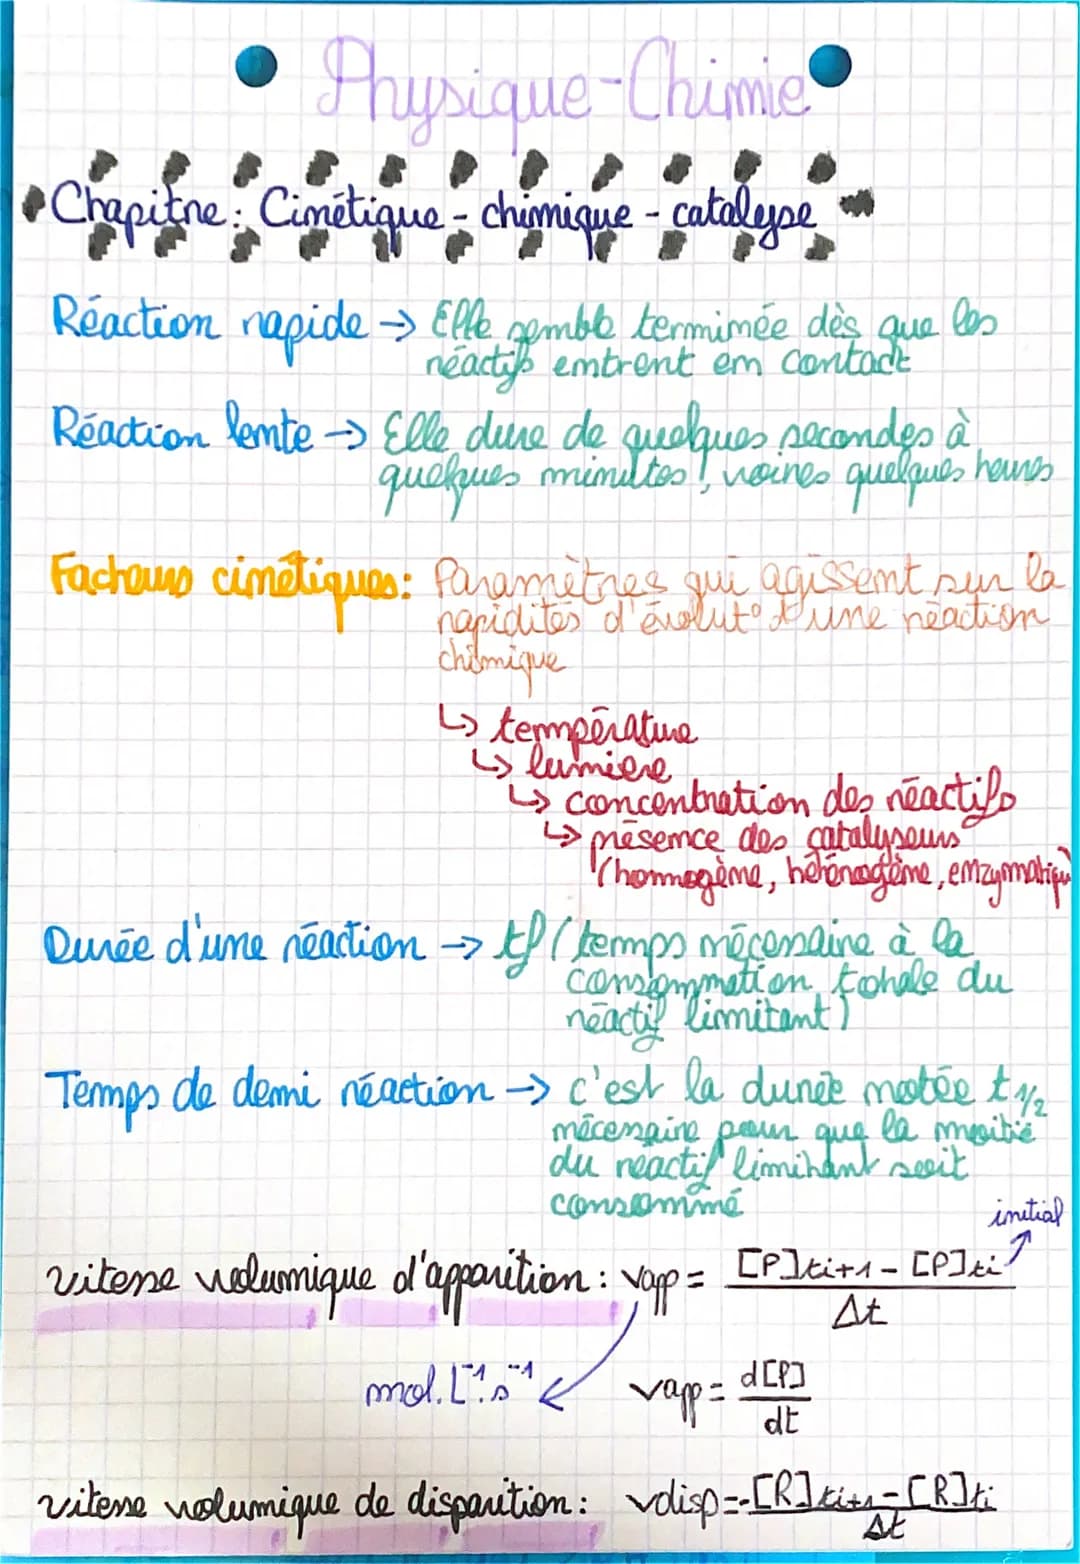 Physique-Chimie
Chapitre: Cinétique - chimique - catalyse
Réaction rapide → Elle semble terminée dès que les
réactifs entrent en contact
Réaction lente → Elle dure de quelques secondes à
quelques minutes !, voires quelques heures
Facteurs cinétiques: Paramètres qui agissent sur la
rapidités d'évolut° d'une réaction
chimique
↳ température
↳ lumiere
↳ concentration des réactifs
↳ présence des catalyseurs
(homogène, hétérogène, enzymatique)
Durée d'une réaction → tf (temps nécessaire à la
consommation totale du
réactif limitant)
Temps de demi réaction → c'est la durée notée t 1/2
nécessaire pour que la moitié
du réactif limitant soit
consommé
initial
vitesse volumique d'apparition : vapp = [P]ti+1 - [P]ti
Δt
mol.L⁻¹.s⁻¹ vapp = d[P]
dt
vitesse volumique de disparition : vdisp = -[R]ti+1 - [R]ti
Δt